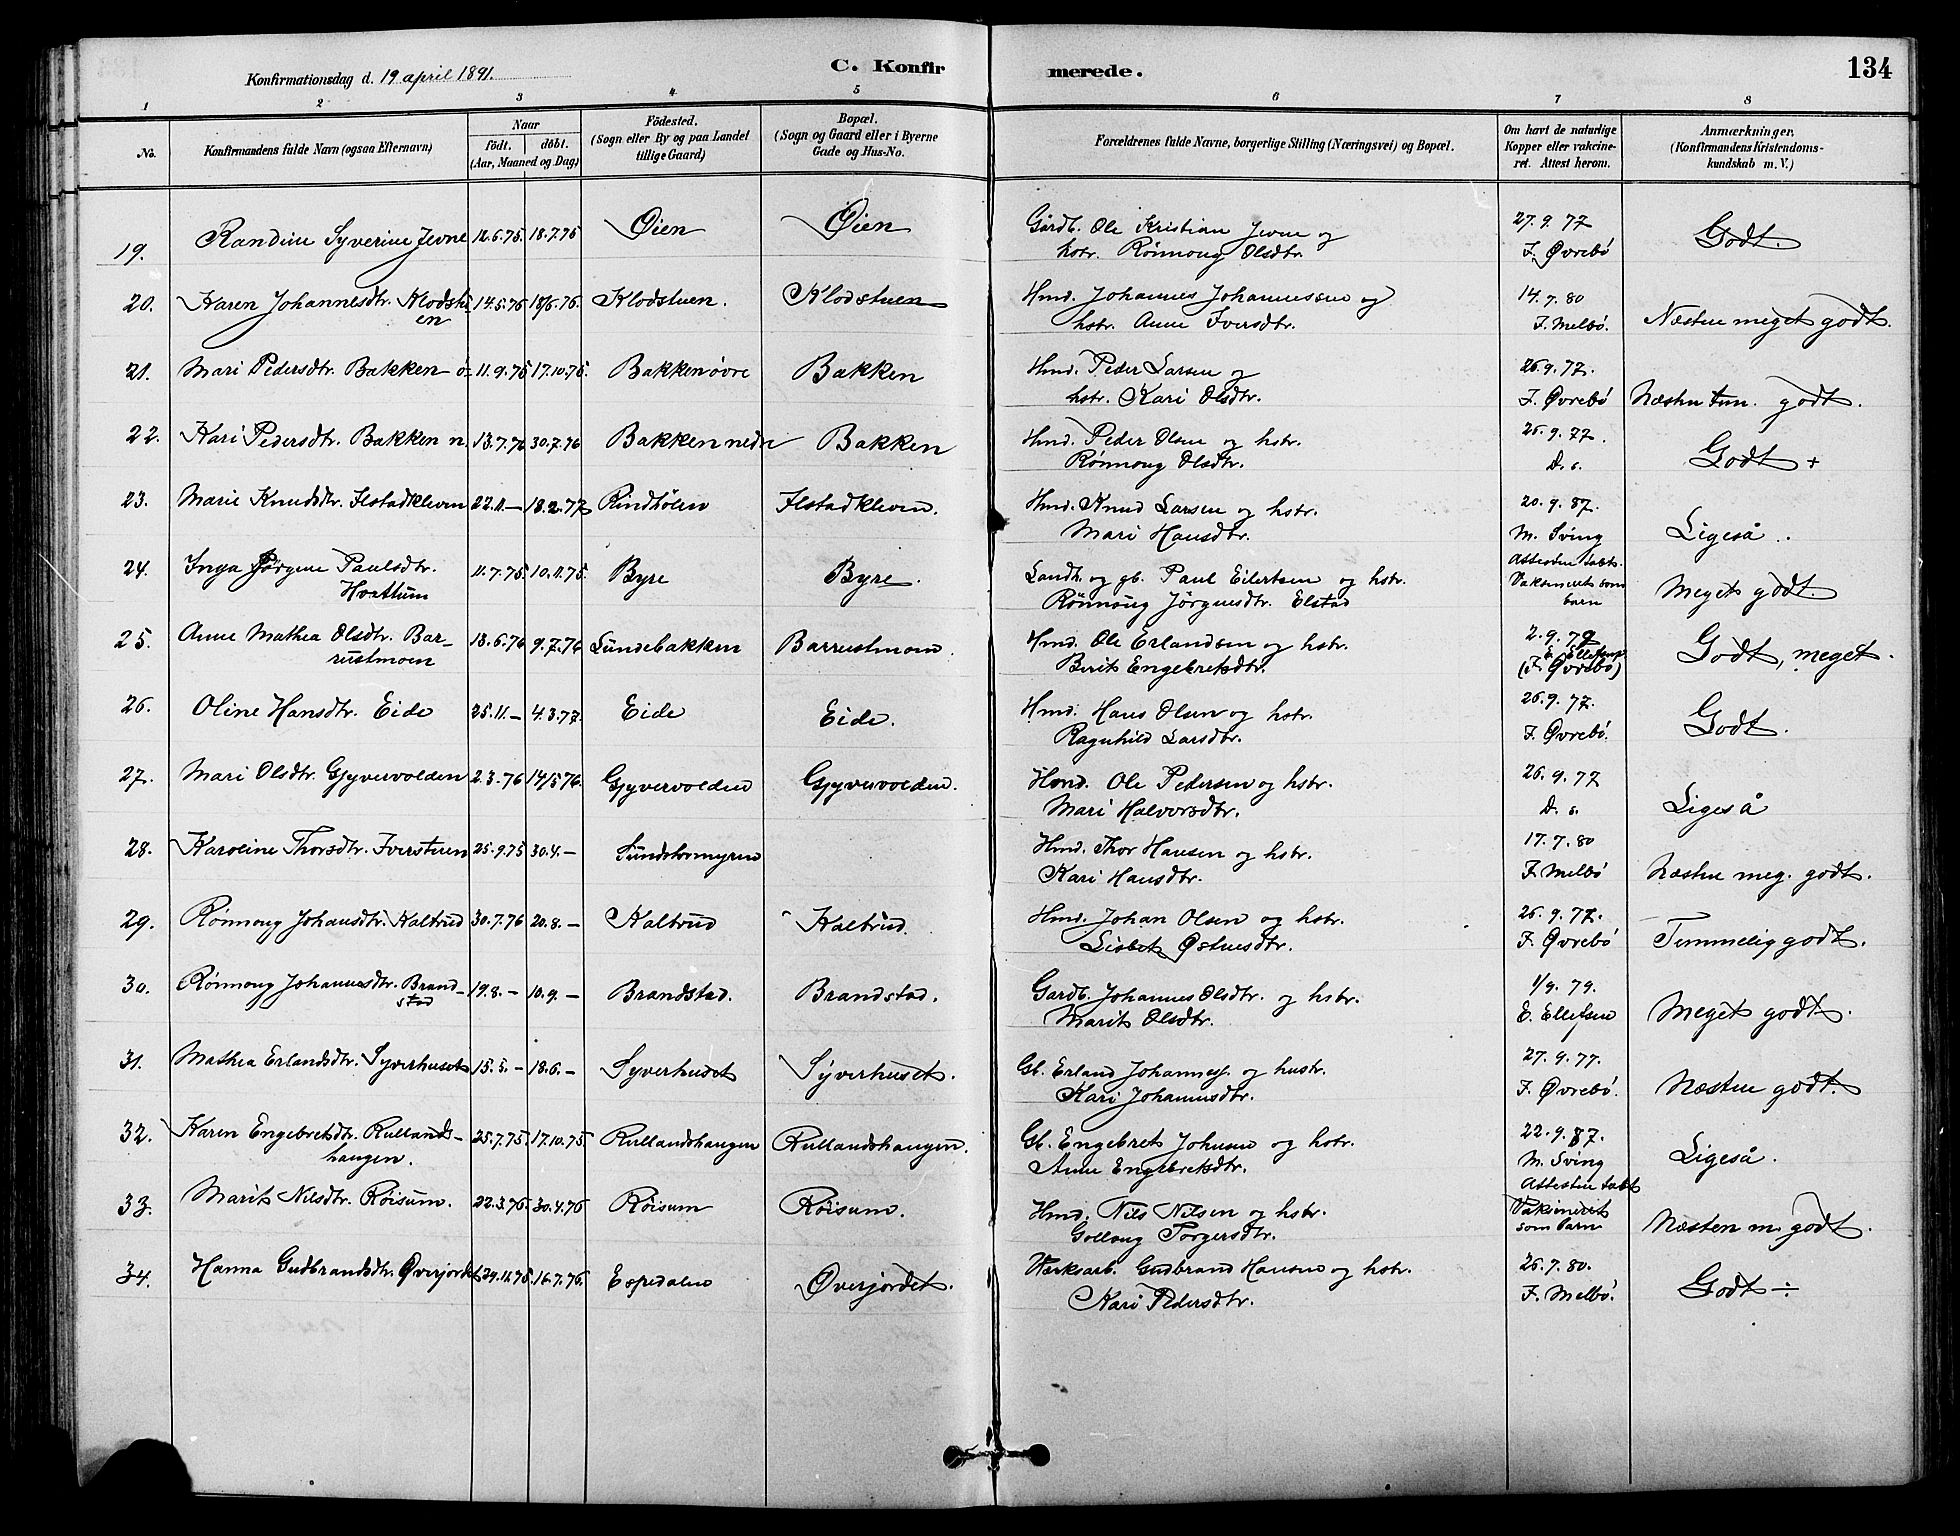 Konfirmationsdag d. 19 april 1891. C. Konfirmerede. 134
1 2 3 4 5 6 7 8
No. Konfirmandens fulde Navn (ogsaa Efternavn) Naar födt. döbt. (Aar, Maaned og Dag) Födested. (Sogn eller By og paa Landet tillige Gaard) Bopæl. (Sogn og Gaard eller i Byerne Gade og Hus-No. Forældrenes fulde Navne, borgerlige Stilling (Næringsvei) og Bopæl. Om havt de naturlige Kopper eller vakcineret. Attest herom. Anmærkninger. (Konfirmandens Kristendomskundskab m. V.)
19. Randine Syverine Jevne 12.6.75. 18.7.75 Øien Øien Gårdb. Ole Kristian Jevne og 27.9.77 Godt.
hstr. Rønnoug Olsdtr. F. Øvrebö
20. Karen Johannesdtr. Klodstu- 14.5.76 18/6.76. Klodstuen. Klodstuen Hmd. Johannes Johannessen og 14.7.80 Næsten meget godt.
en hstr. Anne Iversdtr. F. Melbö.
21. Mari Pedersdtr. Bakken ö. 11.9.75 17.10.75. Bakken øvre Bakken Hmd. Peder Larsen og 26.9.77.
hstr. Kari Olsdtr. F. Øvrebö Næsten tem. godt.
22. Kari Pedersdtr. Bakken n. 13.7.76 30.7.76 Bakken nedre Bakken Hmd. Peder Olsen og hstr. 26.9.77. Godt +
Rønnoug Olsdtr. D. s.
23. Marie Knudsdtr. Ilstadkleven 22.11.— 18.2.77 Rindhölen Ilstadkleven. Hmd. Knud Larsen og hstr. 20.9.87.
Mari Hansdtr. M. Sving Ligeså.
24. Inga Jörgine Paulsdtr. 11.7.75. 10.11.75. Byre Byre. Landh. og gb. Paul Eilertsen og hstr. Attesten tabt. Meget godt.
Hvattum Rönnoug Jörgensdtr. Elstad Vaksineret som barn
25. Anne Mathea Olsdtr. Bar- 18.6.76 9.7.76 Sundebakken Barrustmoen. Hmd. Ole Erlandsen og hstr. 2.9.79 Godt, meget.
rustmoen Berit Engebretsdtr. E. Ellefsen (F. Øvrebö)
26. Oline Hansdtr. Eide 25.11.— 4.3.77. Eide Eide. Hmd. Hans Olsen og hstr. 26.9.77. Godt.
Ragnhild Larsdtr. F. Øvrebö.
27. Mari Olsdtr. Gjyvervolden 2.3.76 14/5 76. Gjyvervolden Gjyvervolden. Hmd. Ole Pedersen og hstr. 26.9.77
Mari Halvorsdtr. D. s. Ligeså
28. Karoline Thorsdtr. Iverstuen 25.9.75 30.4.— Hmd. Thor Hansen og hstr. 17.7.80
Kari Hansdtr. F. Melbö Næsten meg. godt.
29. Rönnoug Johansdtr. Kaltrud 30.7.76 20.8.— Kaltrud Kaltrud. Hmd. Johan Olsen og hstr. 26.9.77.
Lisbet F. Øvrebö Temmelig godt.
30. Rönnoug Johannesdtr. Brand- 19.8.— 10.9.— Brandstad. Brandstad. Gardb. Johannes Olsdtr. og hstr. 1/9.79. Meget godt.
stad Marit Olsdtr. E. Ellefsen
31. Mathea Erlandsdtr. Syverhuset 15.5.— 18.6.— Syverhuset Syverhuset. Gb. Erland Johannes. og hustr. 27.9.77. Næsten godt.
Kari Johannesdtr. F. Øvrebö.
32. Karen Engebretsdtr. Rullands- 25.7.75. 17.10.75 Rullandshaugen Rullandshaugen. Gb. Engebret Johnsen og hstr. 22.9.87. Ligeså.
haugen. Anne Engebretsdtr. M. Sving
33. Marit Nilsdtr. Röisum. 22.3.76. 30.4.76 Röisum Röisum. Hmd. Nils Nilsen og hstr. Attesten tabt Vaksineret Næsten m. godt.
Gollaug Torgersdtr. som barn
34. Hanna Gudbrandsdtr. Øverjordet 29.11.75. 16.7.76. Espedalen Øverjordet. Værksarb. Gudbrand Hansen og hstr. 26.7.80. Godt ÷
Kari Pedersdtr. F. Melbö.